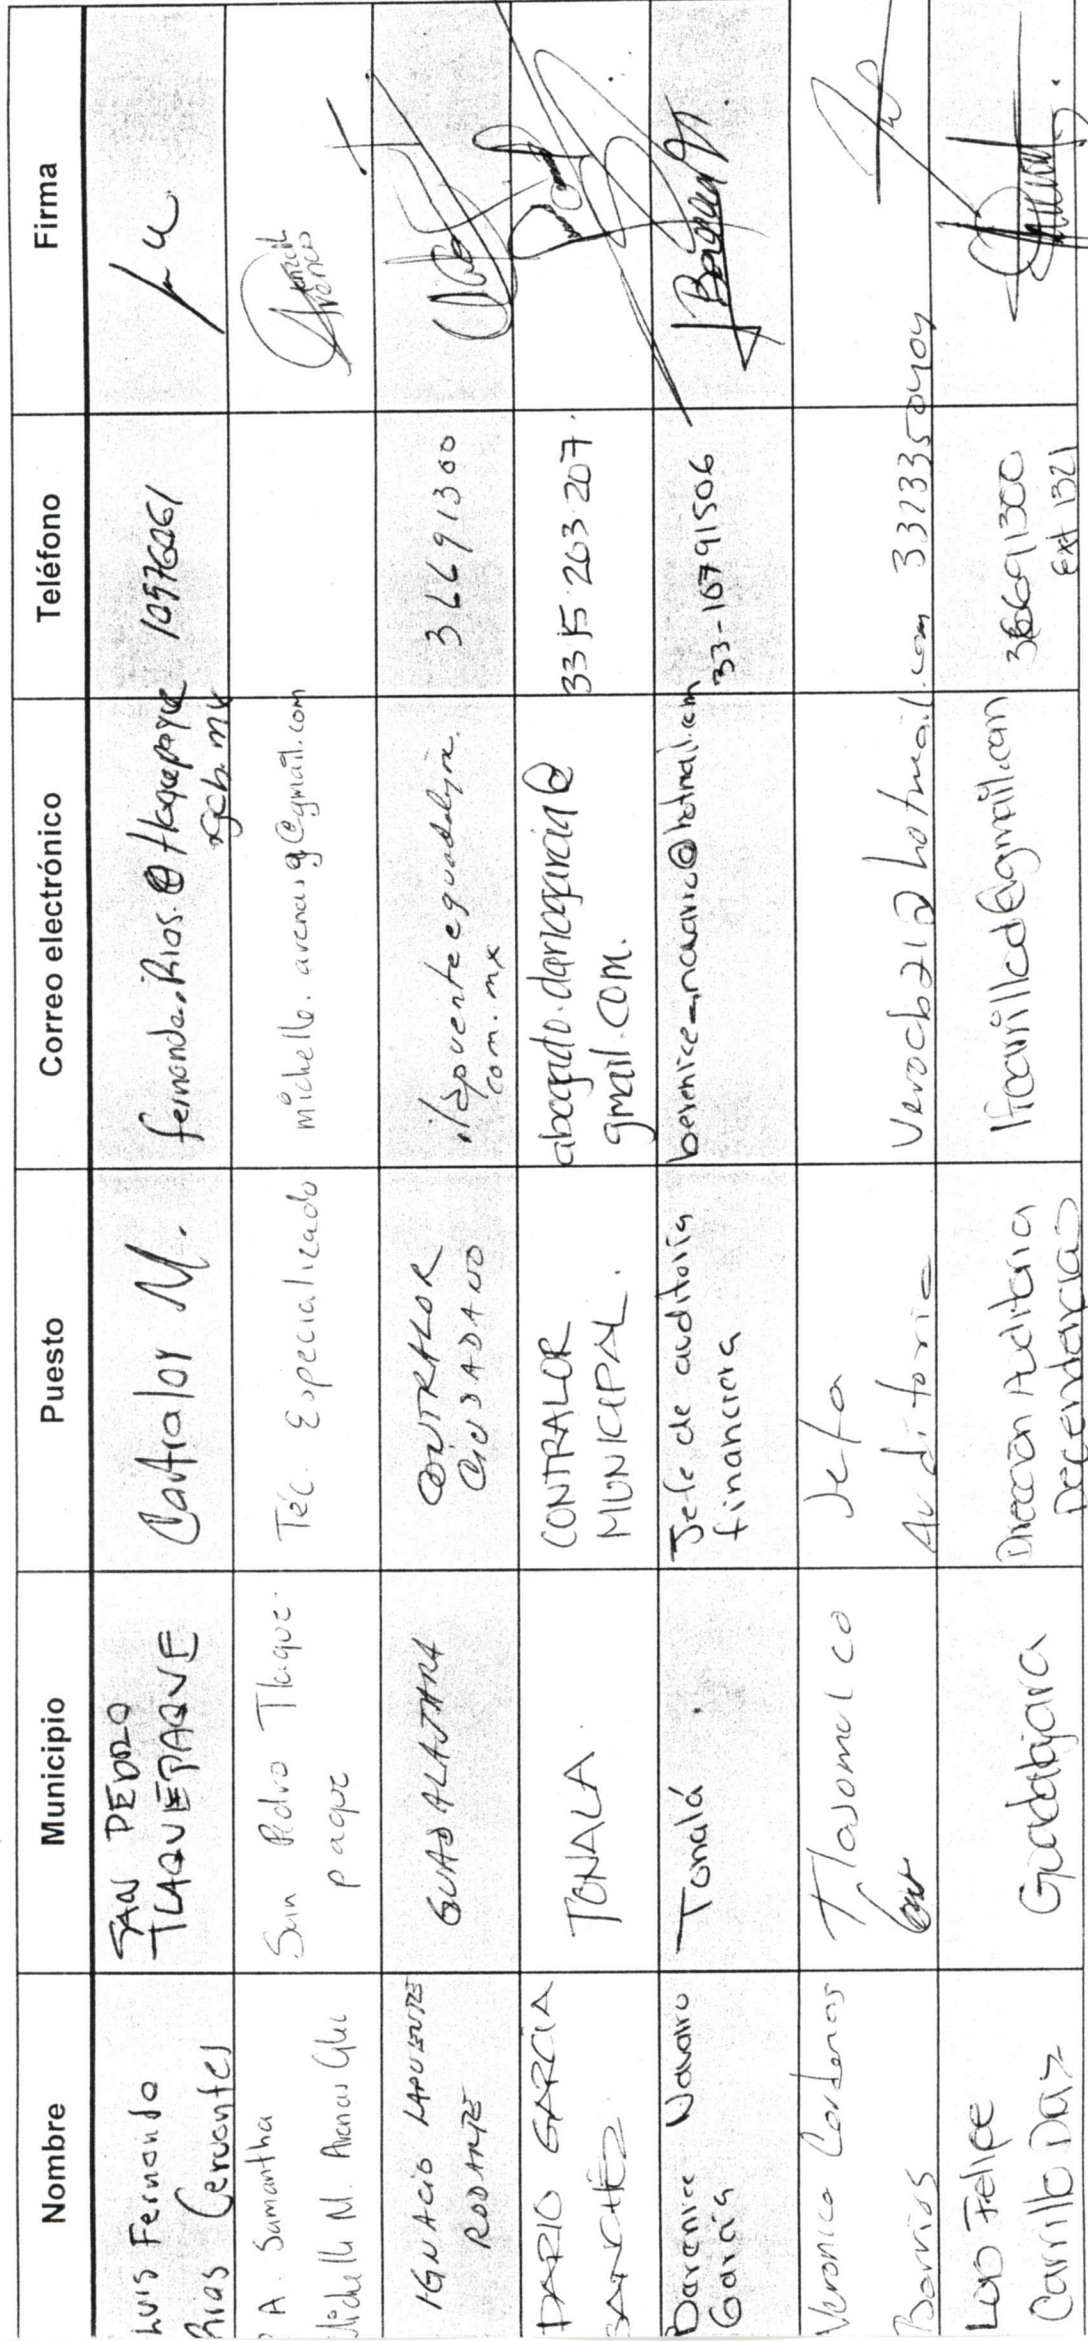 Nombre Municipio Puesto Correo electrónico Teléfono Firma
Luis Fernando
Rios Cervantes
SAN PEDRO
TLAQUEPAQUE
Contralor M.
fernando.Rios.@tlaquepaque
gob.mx
10576261
A. Samantha
Michelle M. Arenas
San Pedro Tlaque-
paque
Téc. Especializado
michelle.arenasg@gmail.com
Arenas
IGNACIO LAPUENTE
RODARTE
GUADALAJARA
CONTRALOR
CIUDADANO
ilapuente@guadalajara.
com.mx
36691300
DARIO GARCÍA
SANCHEZ
TONALA
CONTRALOR
MUNICIPAL.
abogado.dariogarcia@
gmail.com.
3315.263.207.
Berenice Navarro
García
Tonalá
Jefe de auditoría
financiera
berenice_navarro@hotmail.com
33-10791506
Veronica Cardenas
Barrios
Tlajomulco
Jefa
Auditoria
Verocb21@hotmail.com
3323350404
Luis Felipe
Carrillo Diaz
Guadalajara
Dirección Auditoria
Dependencias
lfcarrillod@gmail.com
36691300
ext 1321